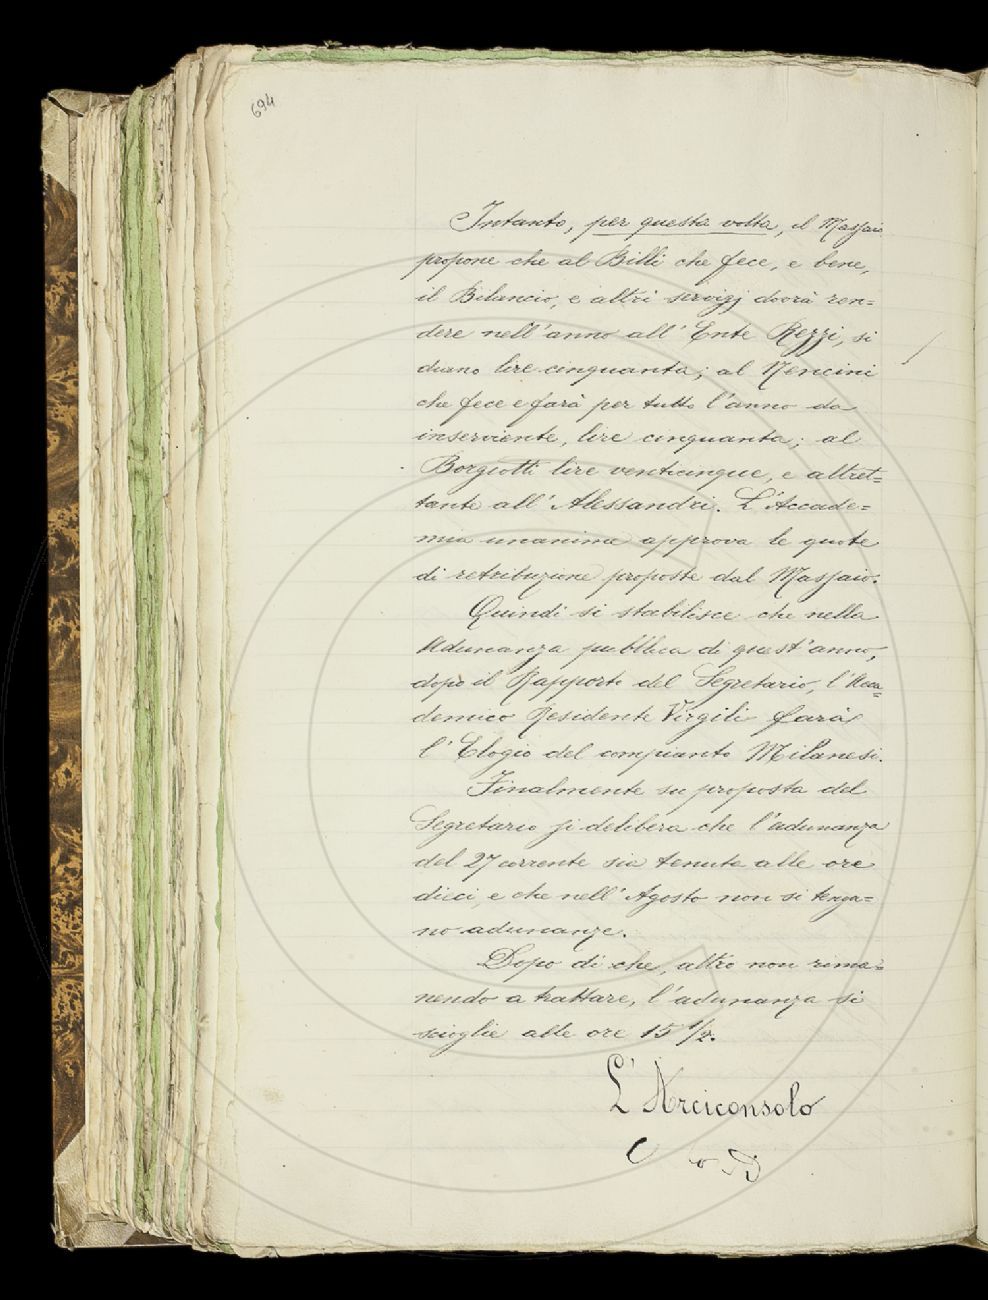 694
Intanto, per questa volta, il Massaio
propone che al Billi che fece, e bene,
il Bilancio, e altri servizj dovrà ren=
dere nell'anno all'Ente Rezzi, si
diano lire cinquanta; al Nencini
che fece e farà per tutto l'anno da
inserviente, lire cinquanta; al
Borgiotti lire venticinque, e altret=
tante all'Alessandri. L'Accade=
mia unanime approva le quote
di retribuzione proposte dal Massaio.
Quindi si stabilisce che nella
Adunanza pubblica di quest'anno,
dopo il Rapporto del Segretario, l'Acca=
demico Residente Virgili farà
l'Elogio del compianto Milanesi.
Finalmente su proposta del
Segretario si delibera che l'adunanza
del 27 corrente sia tenuta alle ore
dieci, e che nell'Agosto non si tenga=
no adunanze.
Dopo di che, altro non rima=
nendo a trattare, l'adunanza si
scioglie alle ore 15 1/2.
L'Arciconsolo